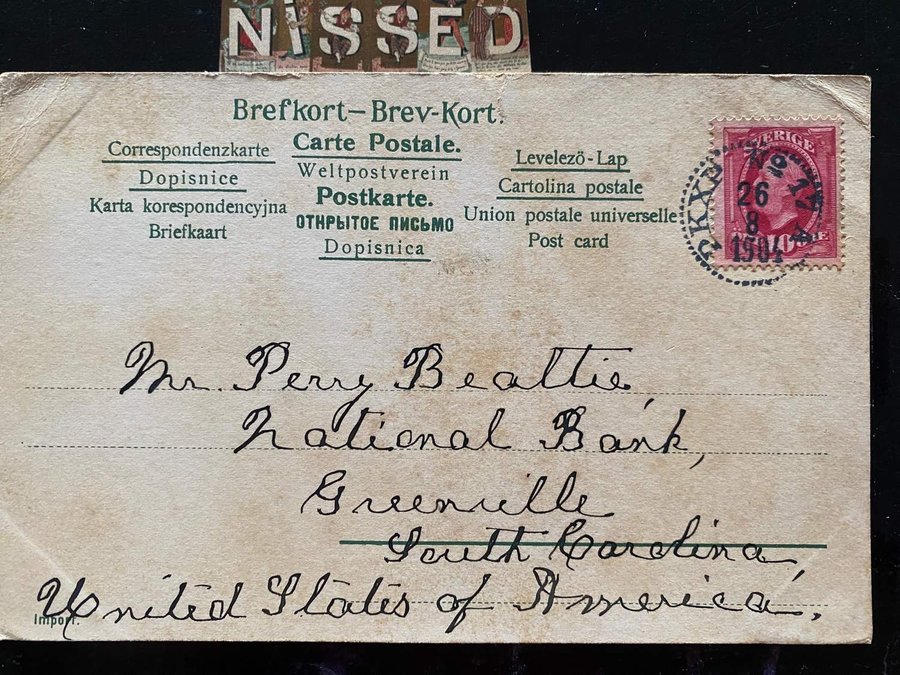 NISSED
Brefkort–Brev-Kort.
Correspondenzkarte
Dopisnice
Karta korespondencyjna
Briefkaart
Carte Postale.
Weltpostverein
Postkarte.
ОТКРЫТОЕ ПИСЬМО
Dopisnica
Levelező-Lap
Cartolina postale
Union postale universelle
Post card
SVERIGE
PKXP No 17
26
8
1904
10 ÖRE
Mr. Perry Beattie,
National Bank,
Greenville
South Carolina,
United States of America,
Import.